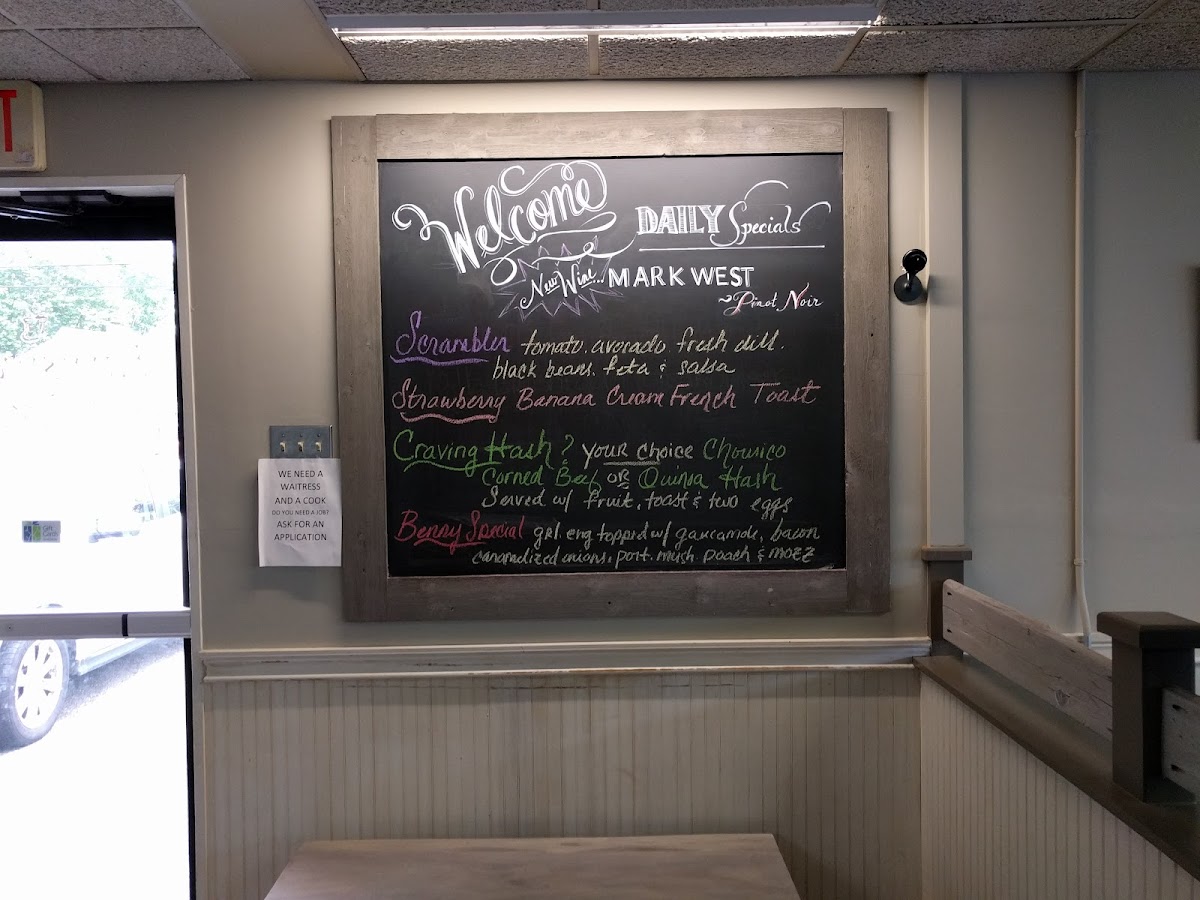 T
Welcome
DAILY Specials
New Wine... MARK WEST
~Pinot Noir
Scrambler tomato. avocado. fresh dill.
black beans. feta & salsa
Strawberry Banana Cream French Toast
Craving Hash? your choice Chourico
Corned Beef OR Quinoa Hash
Served w/ fruit, toast & two eggs
Benny Special grl. eng topped w/ gaucamole, bacon
caramelized onions, port. mush poach & mozz
WE NEED A
WAITRESS
AND A COOK
DO YOU NEED A JOB?
ASK FOR AN
APPLICATION
Gift
Cards